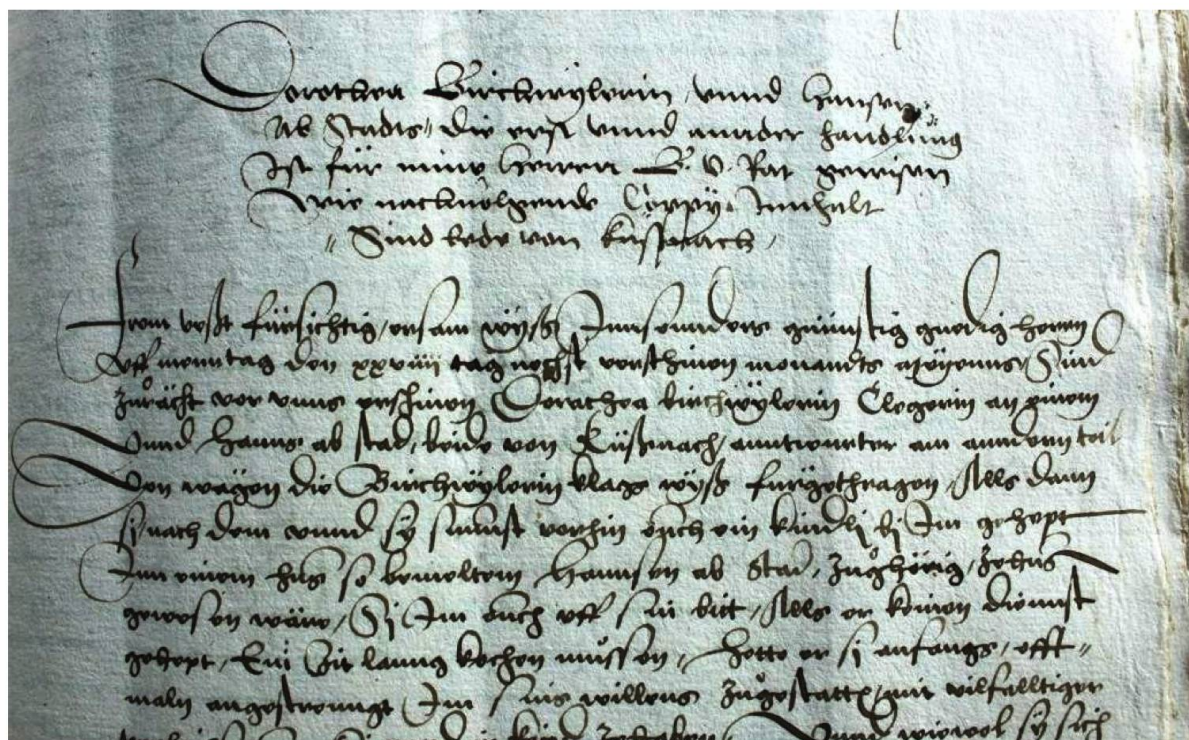 Dorothea Birchwylerin, unnd Hansen
Ab Stadts, die erst unnd annder handlung
Ist für mine herren B. v. Rat gewisen
Wie nachvolgende Coppy, Innhalt
Sind bede von Küssnach,
From vest fürsichtig, ersam wyß, Innsonnders günnstig gnedig herren
Uff monntag den tag nechst verschinen monandts Sind
zů rächt vor unns erschinen Dorothea birchwylerin Clegerin an einem
Unnd Hanns ab stad, beide von Küßnach, anntwurter am anndern teil
Von wägen die Birchwylerin klags wyß fürgethragen, Alls dann
si, nach dem unnd sy sunnst vorhin ouch ein kindli bi Im gehept
Inn einem huß so bemeltem Hannsen ab Stad, zůghörig, zehus
gewesen wäre, Si Im ouch uff sin bitt, Alls er keinen diennst
gehept, Ein Zit lanng kochen müssen, Hette er si anfangs, offt
maln angestrenngt Im sins willens zůgestatten, mit vilfelltiger
Unnd wiewol sy sich